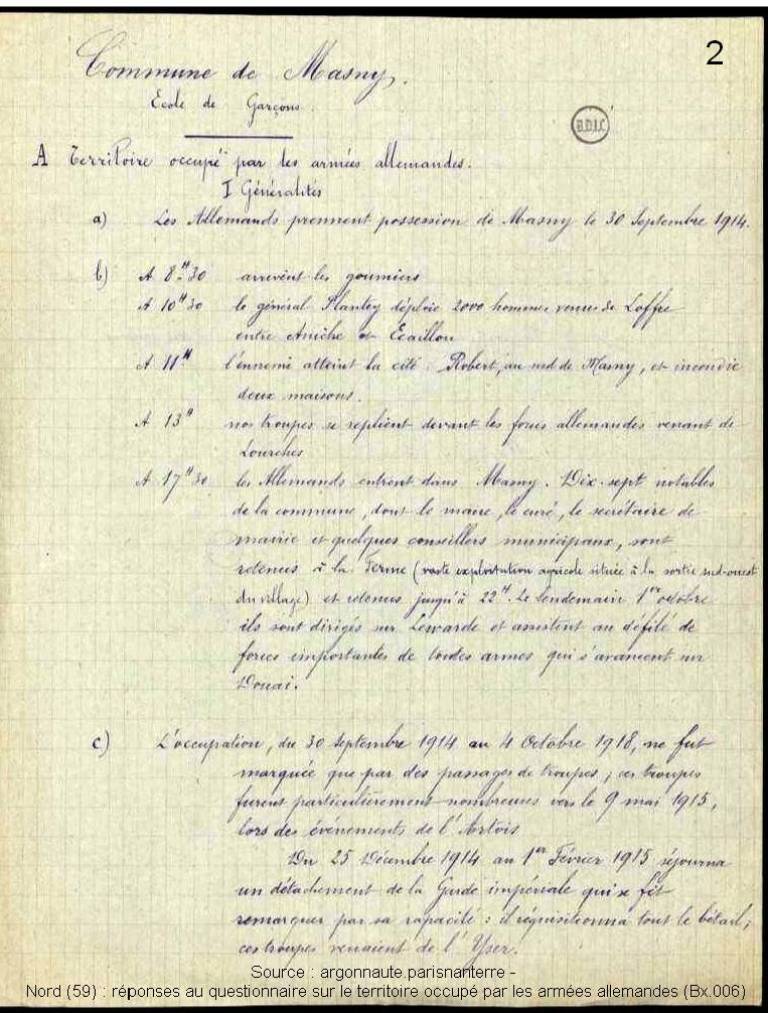 2
Commune de Masny.
Ecole de Garçons.
B.D.I.C
A Territoire occupé par les armées allemandes.
I Généralités
a) Les Allemands prennent possession de Masny le 30 Septembre 1914.
b) A 8H30 arrivent les goumiers
A 10H30 le général Plantey déploie 2000 hommes venus de Loffre
entre Aniche et Ecaillon
A 11H l'ennemi atteint la cité Robert, au nord de Masny, et incendie
deux maisons.
A 13H nos troupes se replient devant les forces allemandes venant de
Lourches
A 17H30 les Allemands entrent dans Masny. Dix-sept notables
de la commune, dont le maire, le curé, le secrétaire de
mairie et quelques conseillers municipaux, sont
retenus à la Ferme (vaste exploitation agricole située à la sortie sud-ouest
du village) et retenus jusqu'à 22H. Le lendemain 1er octobre
ils sont dirigés sur Lewarde et assistent au défilé de
forces importantes de toutes armes qui s'avancent sur
Douai.
c) L'occupation, du 30 septembre 1914 au 4 Octobre 1918, ne fut
marquée que par des passages de troupes ; ces troupes
furent particulièrement nombreuses vers le 9 mai 1915,
lors des événements de l'Artois
Du 25 Décembre 1914 au 1er Février 1915 séjourna
un détachement de la Garde impériale qui se fit
remarquer par sa rapacité : il réquisitionna tout le bétail ;
ces troupes venaient de l'Yser.
Source : argonnaute.parisnanterre -
Nord (59) : réponses au questionnaire sur le territoire occupé par les armées allemandes (Bx.006)